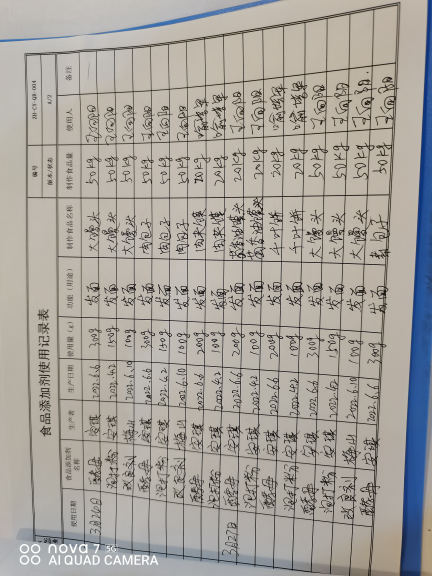 食品添加剂使用记录表
编号 ZH-CX-QR-004
版本/状态 A/2
使用日期 食品添加剂名称 生产者 生产日期 使用量(g) 功能(用途) 制作食品名称 制作食品量 使用人 备注
3月26日 酵母 安琪 2022.6.6 300g 发面 大馒头 50kg 王向阳
泡打粉 安琪 2022.4.2 150g 发面 大馒头 50kg 王向阳
改良剂 梅山 2022.6.10 100g 发面 大馒头 50kg 王向阳
酵母 安琪 2022.6.6 300g 发面 肉包子 50kg 王向阳
泡打粉 安琪 2022.4.2 150g 发面 肉包子 50kg 王向阳
改良剂 梅山 2022.6.10 100g 发面 肉包子 50kg 王向阳
酵母 安琪 2022.6.6 200g 发面 肉夹馍 20kg
泡打粉 安琪 2022.4.2 100g 发面 肉夹馍 20kg
3月27日 酵母 安琪 2022.6.6 200g 发面 20kg 王向阳
泡打粉 安琪 2022.4.2 100g 发面 20kg 王向阳
酵母 安琪 2022.6.6 200g 发面 千叶饼 20kg
泡打粉 安琪 2022.4.2 100g 发面 千叶饼 20kg
酵母 安琪 2022.6.6 300g 发面 大馒头 50kg 王向阳
泡打粉 安琪 2022.4.2 150g 发面 大馒头 50kg 王向阳
改良剂 梅山 2022.6.10 100g 发面 大馒头 50kg 王向阳
酵母 安琪 2022.6.6 300g 发面 素包子 50kg 王向阳
nova 7 5G
AI QUAD CAMERA